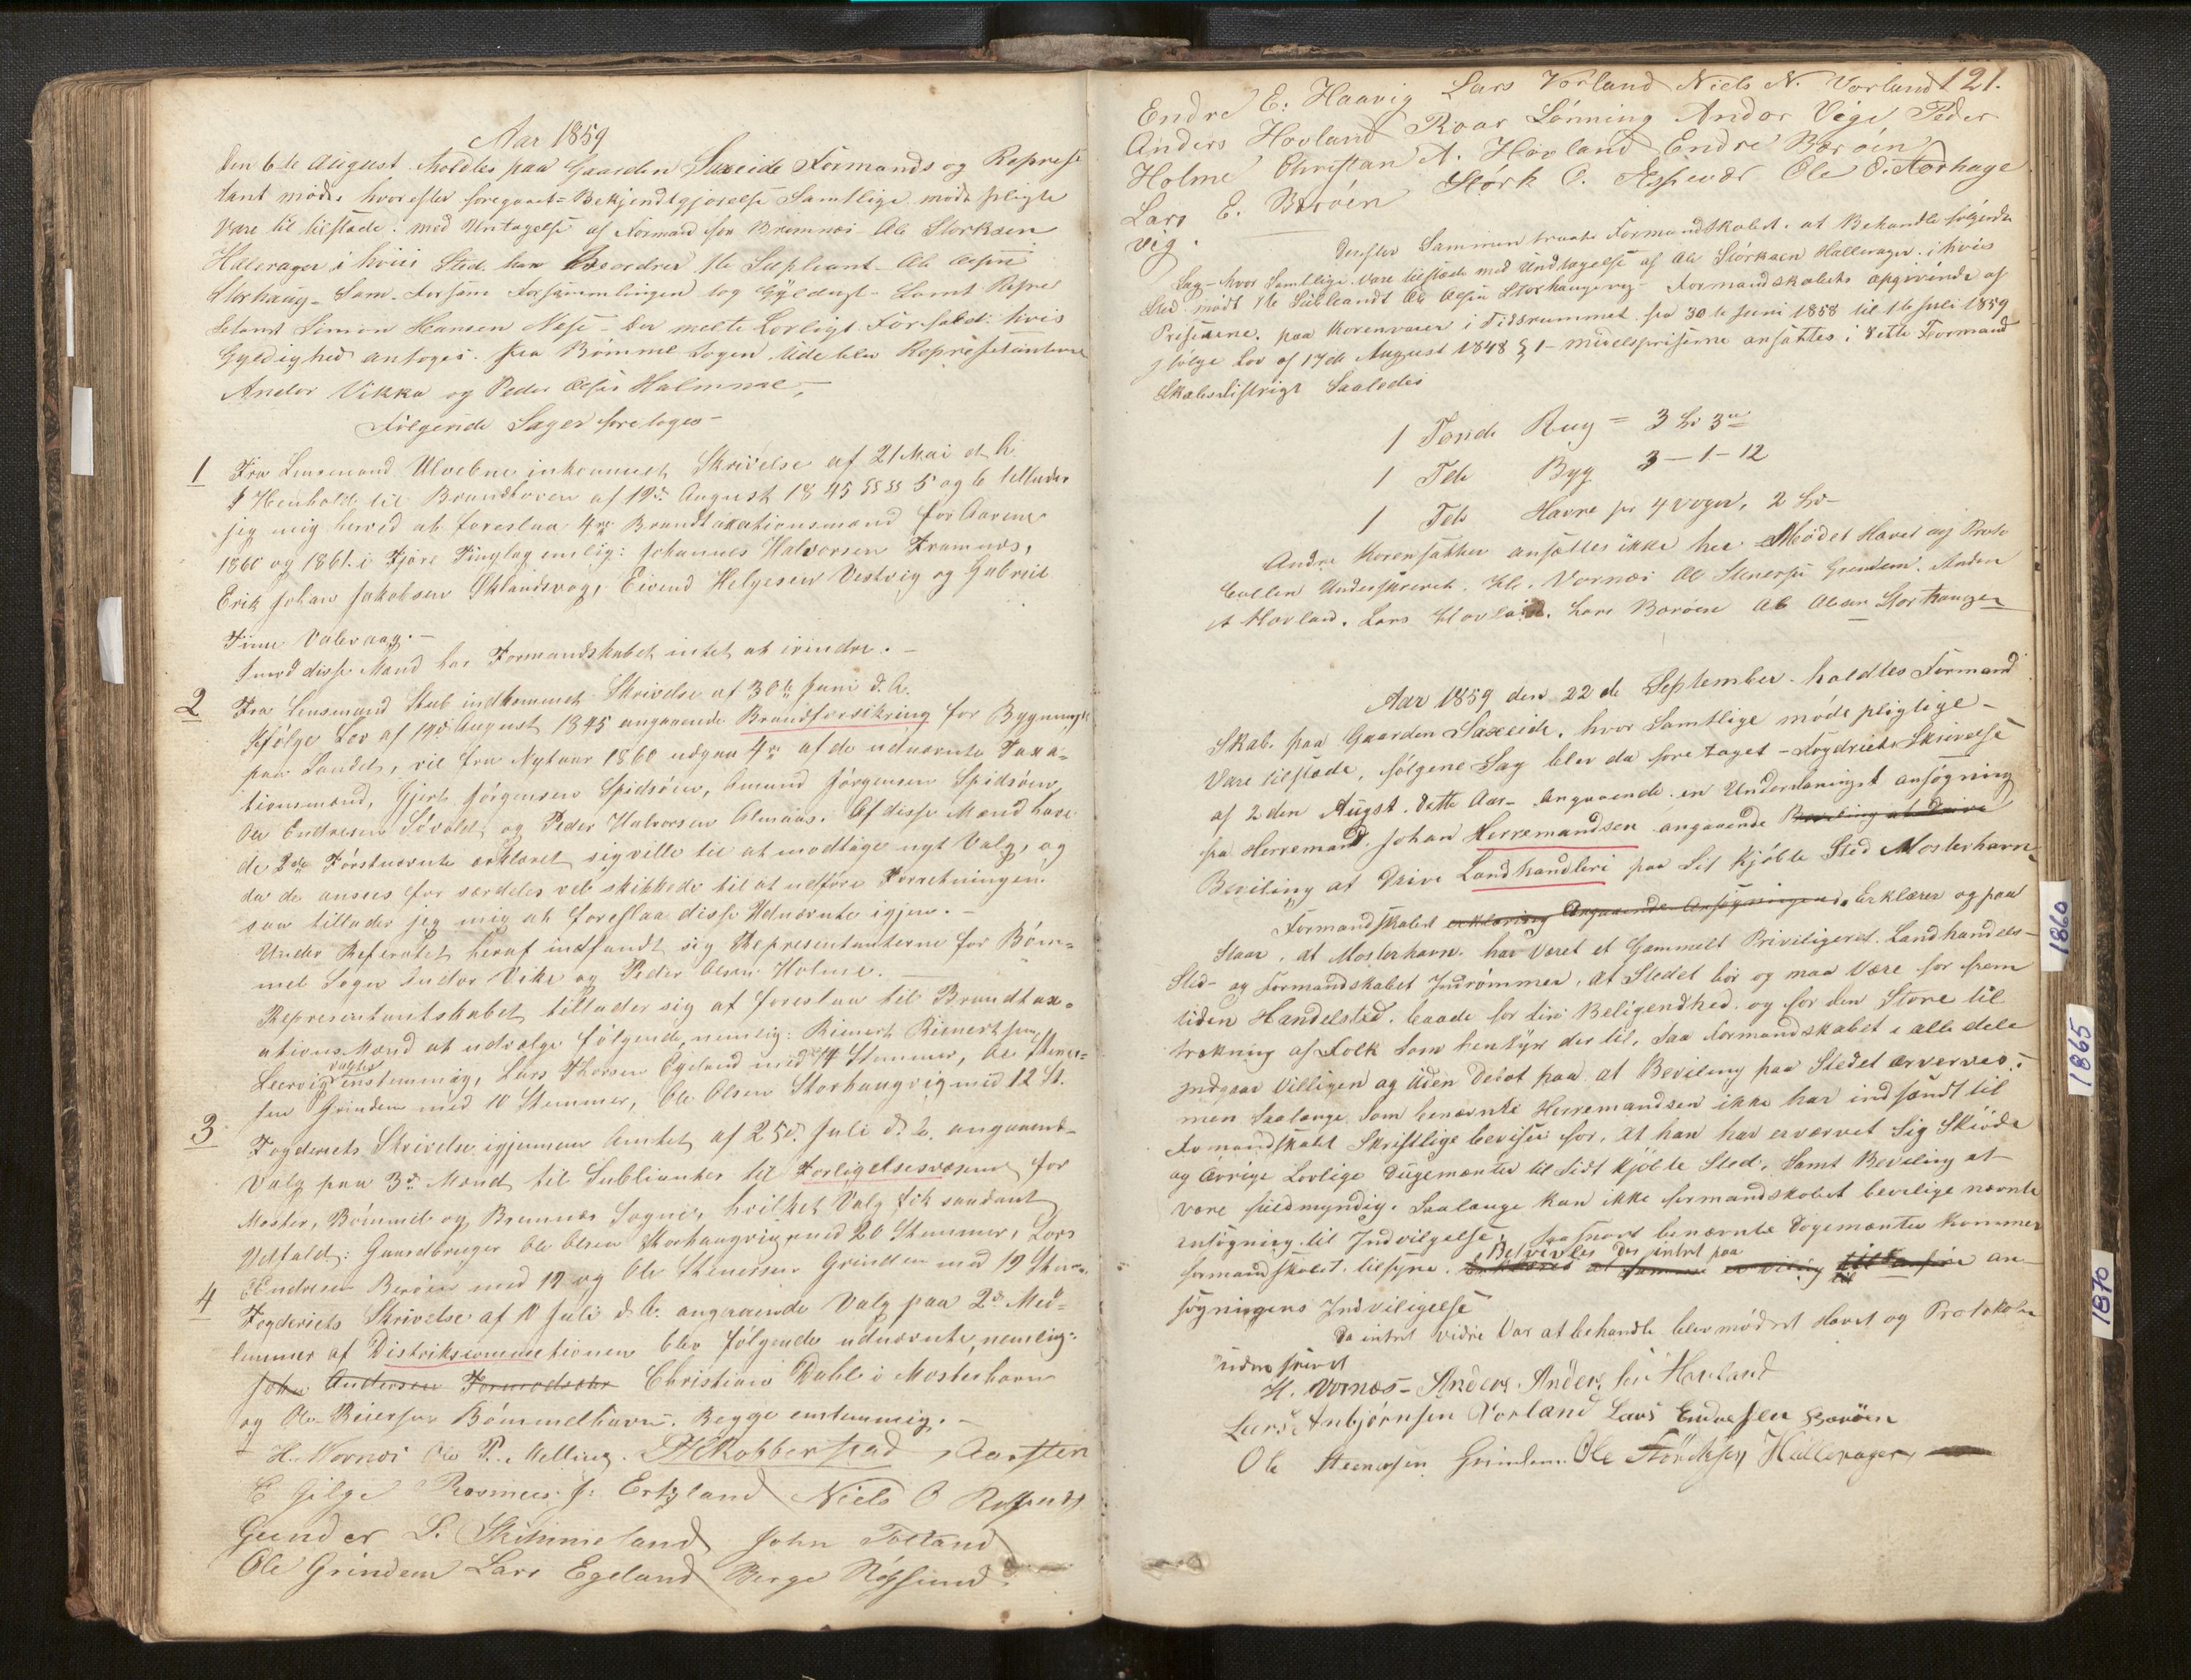 Aar 1859
Den 6te August holdtes paa Gaarden Saxeide Formands og Represe
tant møde, hvorefter foregaaet Bekjendtgjørelse Samtlige møde pligte
Vare til tilstæde. med Untagelse af Formand for Bremnæs Ole Størksen
Hillerager i hviis Sted han Beordrer 1te Supleant Ole Olsen
Storhaug - Som Forsamlingen tog Gyldigt - Samt Repre
setant Simon Hansen Næse - Der melte Lovligt Forfald. hvis
Gyldighed antoges. fra Bømmel Sogen Udeblev Represetanterne
Andor Vikka og Peder Olsen Holmme,
Følgende Sager foretoges -
1 Fra Lensmand Ulvebne inkommet Skrivelse af 21 Mai d. A.
I Henhold til Brandloven af 19de August 1845 §§ 5 og 6 tillader
jeg mig herved at foreslaa 4re Brandtaxationsmænd for Aarene
1860 og 1861. i Fjære Tinglag nemlig: Johannes Halvorsen Framnæs,
Erik Johan Jakobsen Eklandsvog, Eivend Helgesen Vestvig og Gabriel
Finn Valevaag. -
Imod disse Mænd har Formandskabet intet at erindre. -
2 Fra Lensmand Stub indkommet Skrivelse af 30te Juni d. A.
Ifølge Lov af 19de August 1845 angaaende Brandforsikring for Bygninger
paa Landet, vil fra Nytaar 1860 udgaa 4re af de udnævnte Taxa=
tionsmænd, Gjert Jørgensen Spidsøen, Amund Jørgensen Spidsøen,
Ole Endresen Søvold, og Peder Halvorsen Almaas. Af disse Mænd have
de 2de Førstnævnte erklæret sig ville til at modtage nyt Valg, og
da de ansees for særdeles vel skikkede til at udføre Forretningen
saa tillader jeg mig at foreslaa disse Udnævnte igjen. -
Under Referatet heraf indfandt sig Representanterne for Bøm=
mel Sogn Andor Vike og Peder Olsen Holme. -
Representantskabet tillader sig at foreslaa til Brandtax=
ations Mænd at udvælge følgende, nemlig: Rienert Rienertsen
valgt
Leervig enstemmig, Lars Thorsen Egeland med 14 Stemmer, Ole Stener=
sen Grinden med 10 Stemmer, Ole Olsen Storhaugvig med 12 St.
3 Fogderiets Skrivelse igjennem Amtet af 25de Juli d. A. angaaende
Valg paa 3de Mænd til Sublianter til Forligelsesvæsenet for
Moster, Bømmel og Bremnæs Sogne, hvilket Valg fik saadant
Udfald: Gaardbruger Ole Olsen Storhaugvig med 20 Stemmer, Lars
Endresen Berøen med 19 og Ole Stenersen Grinden med 19 Stem.
4 Fogderiets Skrivelse af 10 Juli d. A. angaaende Valg paa 2de Med=
lemmer af Distrikscommitionen blev følgende udnævnte, nemlig:
John Andersen Christian Dahl i Mosterhavn
og Ole Reiersen Bømmelhavn. Begge enstemmig. -
H. Vornæs Ole P. Melling. Robberstad, Aarsten
E Gilje Rasmus J: Eckland Niels O Røksund
Gunder L. Skimmeland John Folland
Ole Grindem Lars Egeland Berge Røksund
121.
Endre E. Haavig Lars Vorland Niels N. Vorland
Anders Hovland Roar Lønning Andor Vige Peder
Holme Christian A. Hovland Endre Berøen
Lars E. Berøen Størk O. Espevær Ole O. Storhage
vig.
Derefter Sammentraate Formandskabet. at Behandle følgende
Sag - hvor Samtlige vare tilstæde med Undtagelse af Ole Størksen Hallerager. i hvis
Sted mødt 1te Subleandt Ole Olsen Storhaugevig - Formandskabets opgivende af
Priserne paa Kornvarer i Tidsrummet fra 30te Juni 1858 til 1te Juli 1859
Ifølge Lov af 17de August 1848 § 1 - middelspriserne ansattes i dette Formand
skabsdistrigt Saaledes
1 Tønde Rug = 3 Sp 3
1 Tde Byg 3 - 1 - 12
1 Tde Havre pr 4 voger, 2 Sp -
Andre Kornsatter ansættes ikke her - Mødet Hævet og Proto
collen Underskrevet. H. Vornæs Ole Stenersen Grindem. Anders
A Hovland. Lars Hovland. Lars Berøen Ole Olsen Storhaugen
Aar 1859 den 22de September holdtes Formand
Skab. paa Gaarden Saxeide, hvor Samtlige møde pligtige -
Vare tilstæde, følgene Sag blev da foretaget - Fogdriets Skrivelse
af 2den Augst. dette Aar - Angaaende en Underdanigst ansøgning
fra Herremand Johan Herremandsen angaaende Beviling at Drive
Beviling at Drive Landhandleri paa Sit kjøbte Sted Mosterhavn
Formandskabet erklæring Angaaende Ansøgningen, Erklærer og paa
Staar, at Mosterhavn har Været et Gammelt Priviligeret Landhandels-
Sted - og Formandskabet Indrømmer, at Stedet bør og maa Være for frem
tiden Handelsted. baade for sin Beligendhed og for den Store til
trækning af Folk som hensyn der til, Saa Formandskabet i alle dele
Indgaar Villigen og Uden Debat paa at Beviling paa Stedet erverves.
men Saalænge Som benævnte Herremandsen ikke har indsendt til
Formandskabet Skriftlige beviser for, At han har ervervet Sig Skiøde
og øvrige Lovlige Dogementer til Sidt kjøbte Sted. Samt Beviling at
være fuldmyndig. Saalænge kan ikke formandskabet bevilige nævnte
ansøgning til Indvilgelse, Saasnart benævnte Dogementer kommer
Betvivles Des intet paa
formandskabet tilsyne. an-
søgningens Indviligelse
Da intet vidre Var at behandle blev mødet Hævet og Protokolen
underskrevet
H. Vornæs - Anders Andersen Hovland
Lars Anbjørnsen Vorland Lars Endresen Berøen
Ole Stenersen Grindem. Ole Størcksen Hallerager,
1860
1865
1870